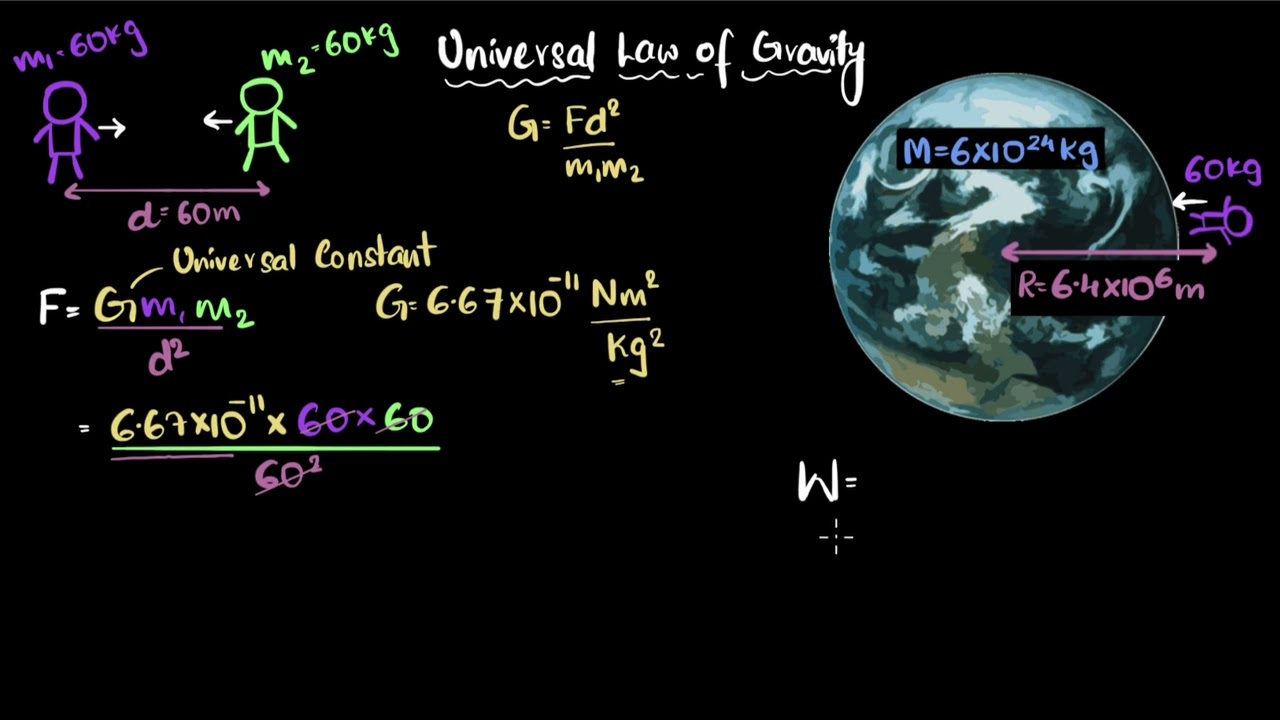 m₁=60kg
m₂=60kg
Universal Law of Gravity
G=Fd²/m₁m₂
M=6×10²⁴kg
60kg
d=60m
Universal Constant
R=6.4×10⁶m
F=Gm₁m₂/d²
G=6.67×10⁻¹¹ Nm²/kg²
= 6.67×10⁻¹¹×60×60/60²
W=